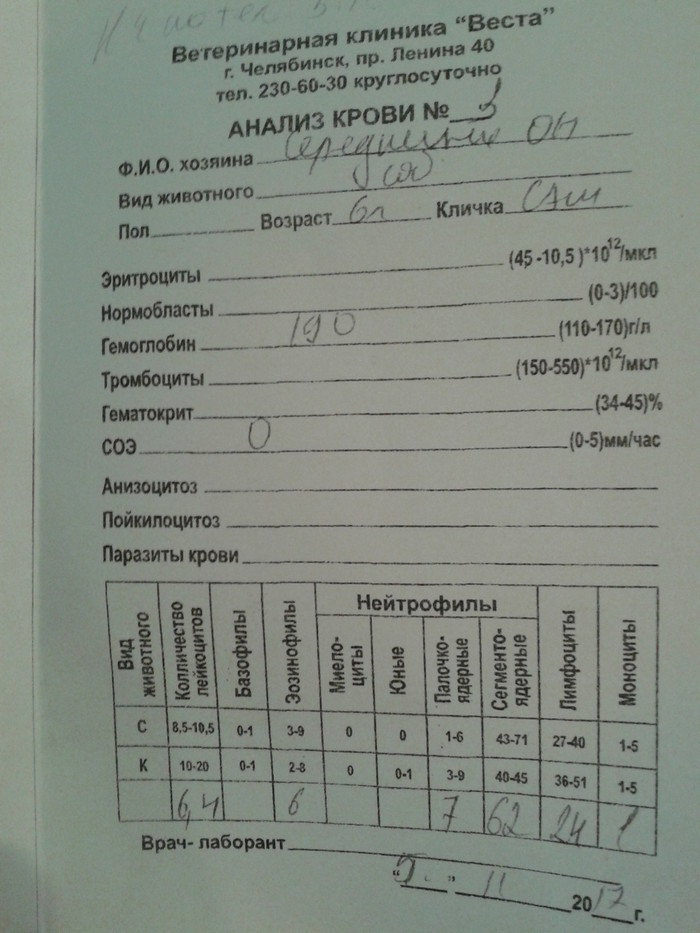 Ветеринарная клиника "Веста"
г. Челябинск, пр. Ленина 40
тел. 230-60-30 круглосуточно
АНАЛИЗ КРОВИ № 3
Ф.И.О. хозяина
Вид животного соб
Пол Возраст 6л Кличка Сэм
Эритроциты (45-10,5)*10¹²/мкл
Нормобласты (0-3)/100
Гемоглобин 190 (110-170)г/л
Тромбоциты (150-550)*10¹²/мкл
Гематокрит (34-45)%
СОЭ 0 (0-5)мм/час
Анизоцитоз
Пойкилоцитоз
Паразиты крови
Вид животного Колличество лейкоцитов Базофилы Эозинофилы Нейтрофилы Миело-циты Юные Палочко-ядерные Сегменто-ядерные Лимфоциты Моноциты
С 8,5-10,5 0-1 3-9 0 0 1-6 43-71 27-40 1-5
К 10-20 0-1 2-8 0 0-1 3-9 40-45 36-51 1-5
6,4 6 7 62 24 1
Врач- лаборант
"5" 11 2017г.